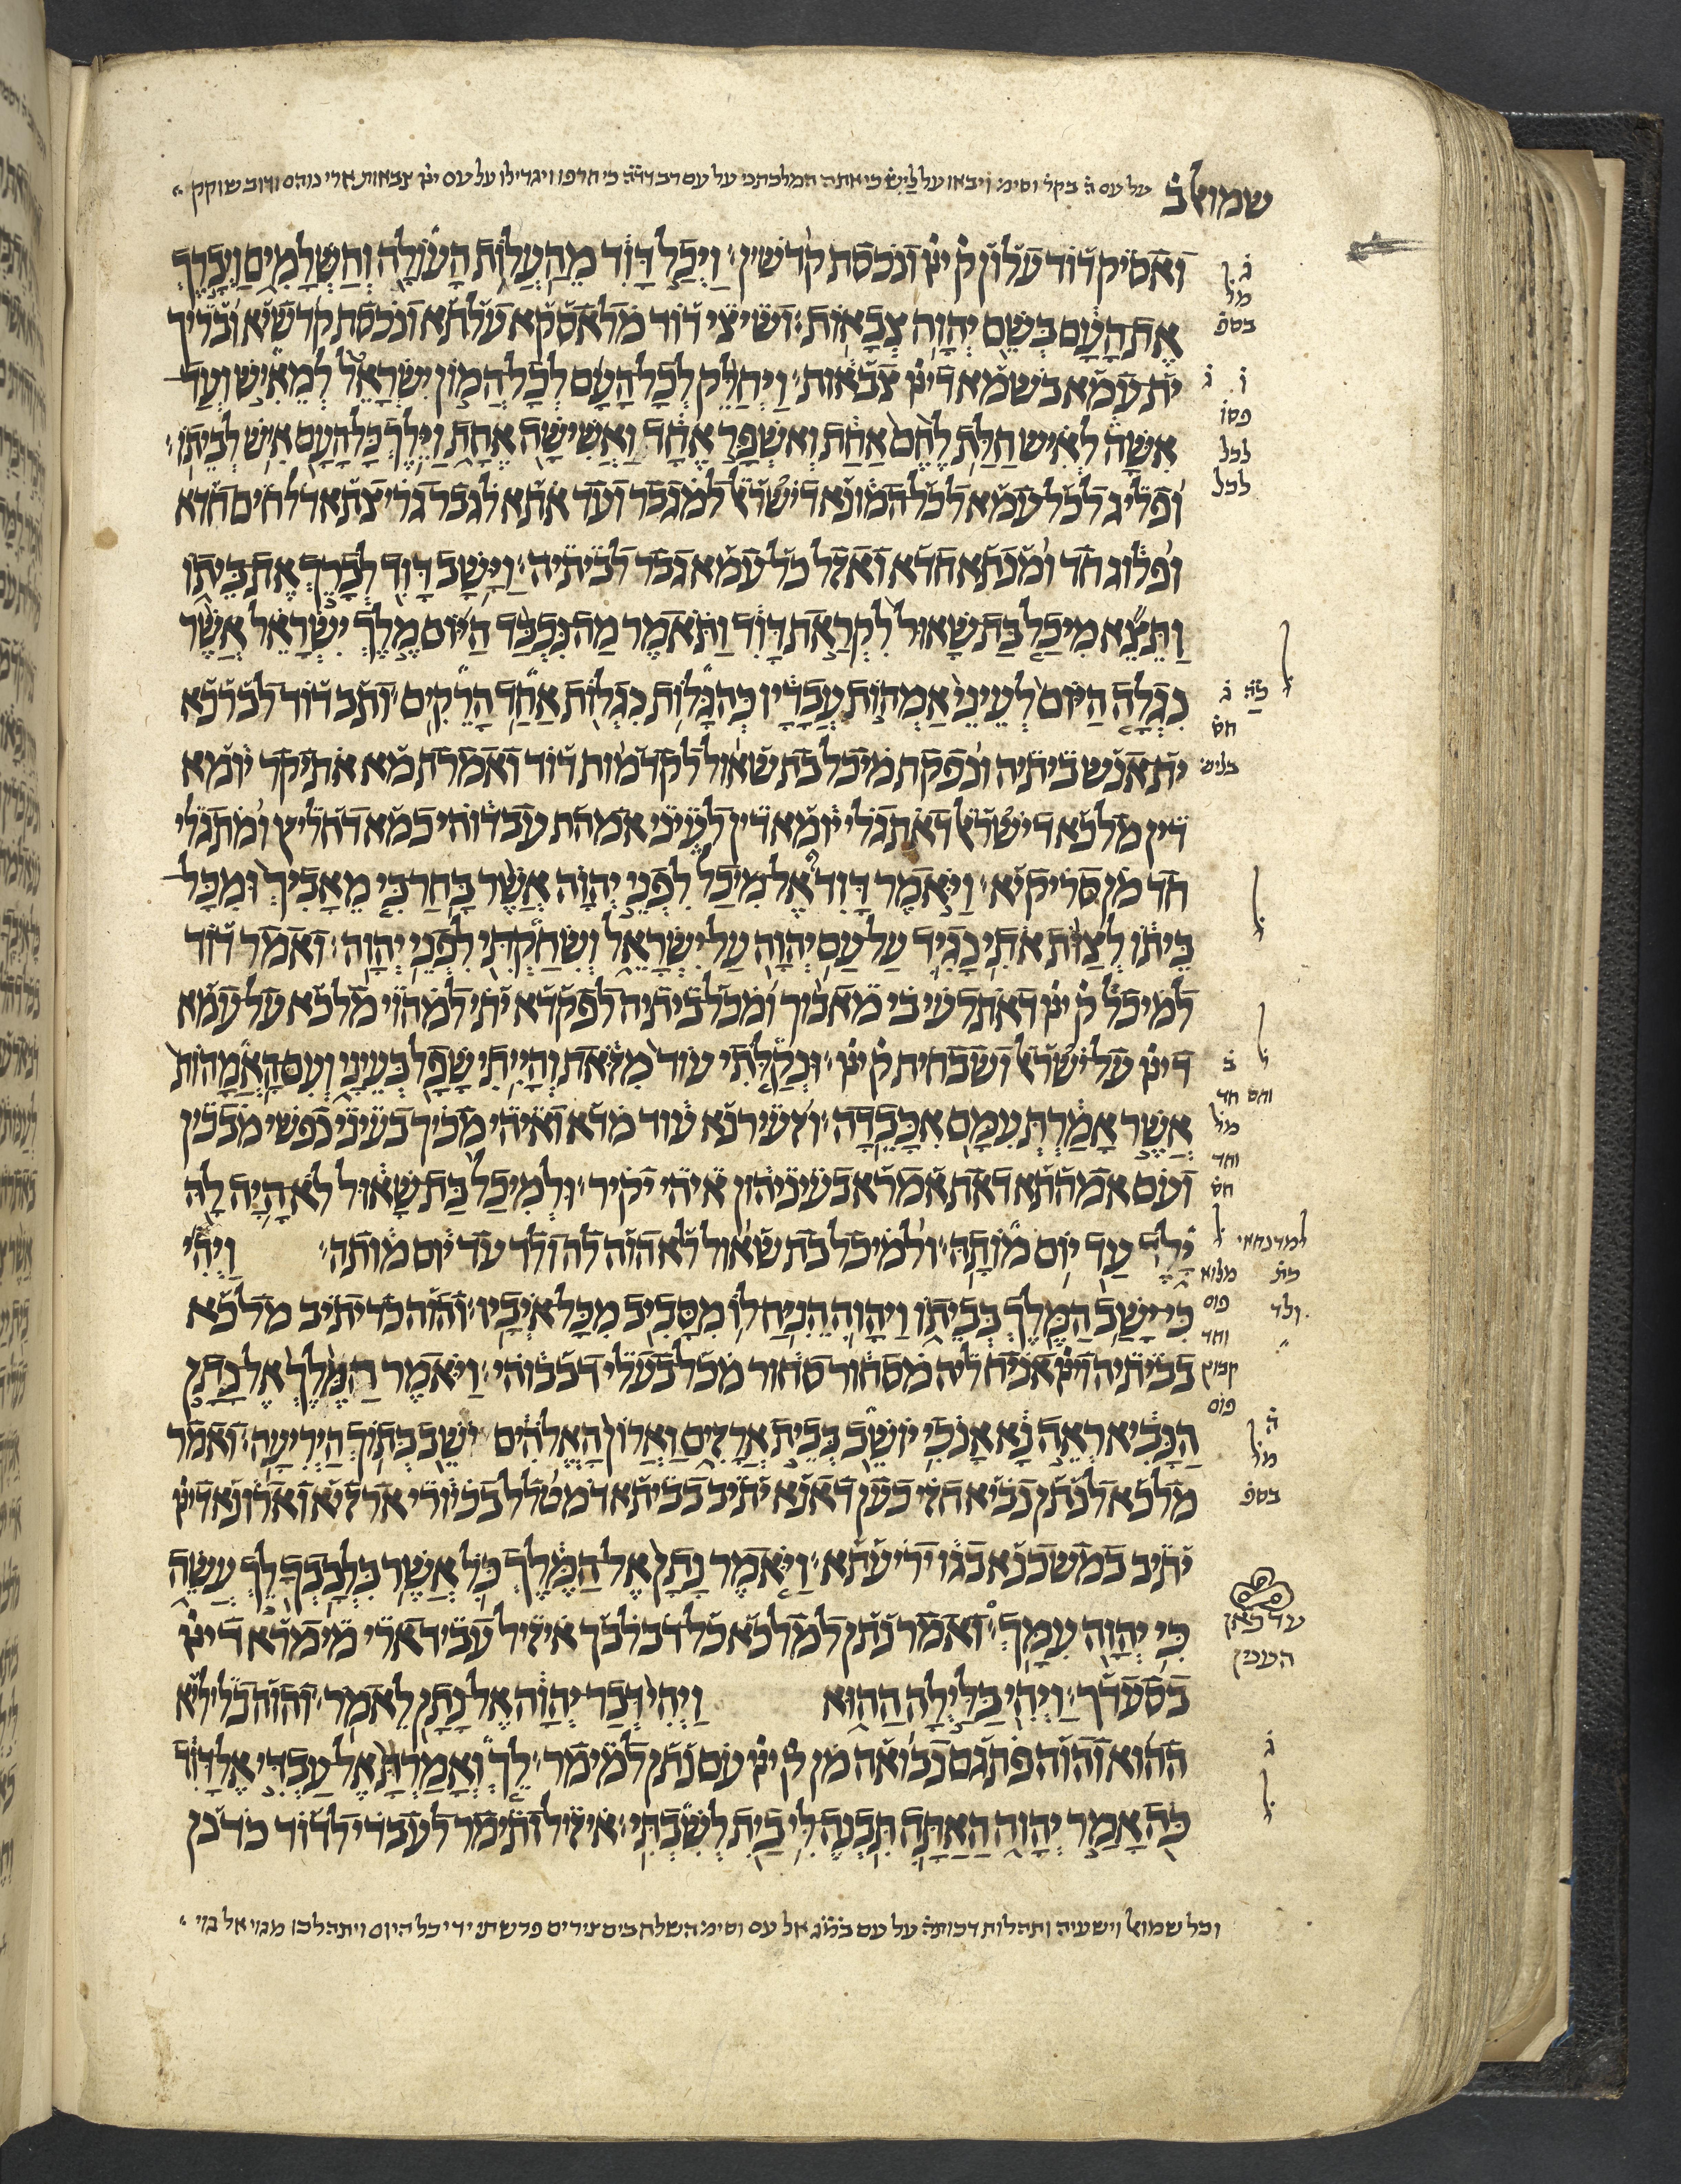 שמואל ב
על עם ה֗ בקר֗ וסימ֗ ויבאו על ליש֗ כי אתה המלכתני על עם רב דד֗ה כי חרפו ויגדילו על עם ייי֗ צבאות ארי נוהם ודוב שוקק
וְאַסֵיק דָוִד עֲלָוָן ק֗ ייי֗ וְנִכסַת קֻדשִין׃ וַיְכַל דָּוִד מֵהַעֲלוֹת הָעוֹלָה וְהַשְּׁלָמִים וַיְבָרֶךְ
אֶת הָעָם בְּשֵׁם יְהוָה צְבָאוֹת׃ ושיצי דוד מלאסקא עלתא ונכסת קדשיא ובריך
ית עמא בשמא דייי֗ צבאות׃ וַיְחַלֵּק לְכָל הָעָם לְכָל הֲמוֹן יִשְׂרָאֵל לְמֵאִישׁ וְעַד
אִשָּׁה לְאִישׁ חַלַּת לֶחֶם אַחַת וְאֶשְׁפָּר אֶחָד וַאֲשִׁישָׁה אֶחָת וַיֵּלֶךְ כָּל הָעָם אִישׁ לְבֵיתוֹ׃
ופליג לכל עמא לכל המונא דישראל למגבר ועד אתא לגבר גריצתא דלחים חדא
ופלוג חד ומנתא חדא ואזל כל עמא גבר לביתיה׃ וַיָּשָׁב דָּוִד לְבָרֵךְ אֶת בֵּיתוֹ
וַתֵּצֵא מִיכַל בַּת שָׁאוּל לִקְרַאת דָּוִד וַתֹּאמֶר מַה נִּכְבַּד הַיּוֹם מֶלֶךְ יִשְׂרָאֵל אֲשֶׁר
נִגְלָה הַיּוֹם לְעֵינֵי אַמְהוֹת עֲבָדָיו כְּהִגָּלוֹת נִגְלוֹת אַחַד הָרֵקִים׃ ותב דוד לברכא
ית אנש ביתיה ונפקת מיכל בת שאול לקדמות דוד ואמרת מא אתיקר יומא
דין מלכא דישראל דאתגלי יומא דין לעיני אמהת עבדוהי כמא דחליץ ומתגלי
חד מן סריקיא׃ וַיֹּאמֶר דָּוִד אֶל מִיכַל לִפְנֵי יְהוָה אֲשֶׁר בָּחַר בִּי מֵאָבִיךְ וּמִכָּל
בֵּיתוֹ לְצַוֹּת אֹתִי נָגִיד עַל עַם יְהוָה עַל יִשְׂרָאֵל וְשִׂחַקְתִּי לִפְנֵי יְהוָה׃ ואמר דוד
למיכל ק֗ ייי֗ דאתרעי בי מאביך ומכל ביתיה לפקדא יתי למהוי מלכא על עמא
דייי֗ על ישראל ושבחית ק֗ ייי֗׃ וּנְקַלֹּתִי עוֹד מִזֹּאת וְהָיִיתִי שָׁפָל בְּעֵינָי וְעִם הָאֲמָהוֹת
אֲשֶׁר אָמַרְתְּ עִמָּם אִכָּבֵדָה׃ ולעירנא עוד מדא ואיהי מכיך בעיני נפשי מבכין
ועם אמהתא דאת אמרא בעיניהון איהי יקיר׃ וּלְמִיכַל בַּת שָׁאוּל לֹא הָיָה לָהּ
יָלֶד עַד יוֹם מוֹתָהּ׃ ולמיכל בת שאול לא הוה לה ולד עד יום מותה׃ וַיְהִי
כִּי יָשַׁב הַמֶּלֶךְ בְּבֵיתוֹ וַיהוָה הֵנִיחַ לוֹ מִסָּבִיב מִכָּל אֹיְבָיו׃ והוה כד יתיב מלכא
בביתיה וייי֗ אניח ליה מסחור סחור מכל בעלי דבבוהי׃ וַיֹּאמֶר הַמֶּלֶךְ אֶל נָתָן
הַנָּבִיא רְאֵה נָא אָנֹכִי יוֹשֵׁב בְּבֵית אֲרָזִים וַאֲרוֹן הָאֱלֹהִים יֹשֵׁב בְּתוֹךְ הַיְרִיעָה׃ ואמר
מלכא לנתן נביא חזי כען דאנא יתיב בביתא דמטלל בכיורי ארזיא וארונא דייי֗
יתיב במשכנא בגו יריעתא׃ וַיֹּאמֶר נָתָן אֶל הַמֶּלֶךְ כֹּל אֲשֶׁר בִּלְבָבְךָ לֵךְ עֲשֵׂה
כִּי יְהוָה עִמָּךְ׃ ואמר נתן למלכא כל דבלבך איזיל עביד ארי מימרא דייי֗
בסעדך׃ וַיְהִי בַּלַּיְלָה הַהוּא וַיְהִי דְּבַר יְהוָה אֶל נָתָן לֵאמֹר׃ והוה בליליא
ההוא והוה פתגם נבואה מן ק֗ ייי֗ עם נתן למימר׃ לֵךְ וְאָמַרְתָּ אֶל עַבְדִּי אֶל דָּוִד
כֹּה אָמַר יְהוָה הַאַתָּה תִּבְנֶה לִּי בַיִת לְשִׁבְתִּי׃ איזיל ותימר לעבדי לדוד כדנן
וכל שמואל וישעיה ותהלות דכותה על עם במ֗ג אל עם וסימ֗ השלח בים צירים פרשתי ידי כל היום ויתהלכו מגוי אל גוי
ג
מל
בספ֗
ג
ו
פסו֗
לכל
לכל
ל
ג
חס֗
בליש֗
ל
ל
ב֗
וחס חד
מל
וחד
חס֗
ל
למדנחאי
כת֗
ולד
מלוא
פוס
וחד
קמוץ
פוס
ה֗
מל
בספ֗
עד כאן
הענין
ג֗
ל